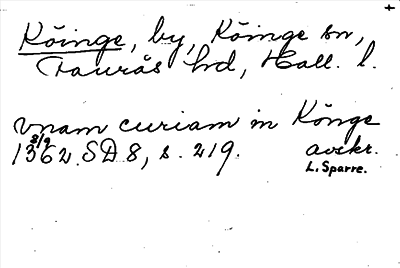 Köinge, by, Köinge sn,
Faurås hd, Hall. l.
vnam curiam in Könge
8/9
1362. SD 8, s. 219. avskr.
L. Sparre.